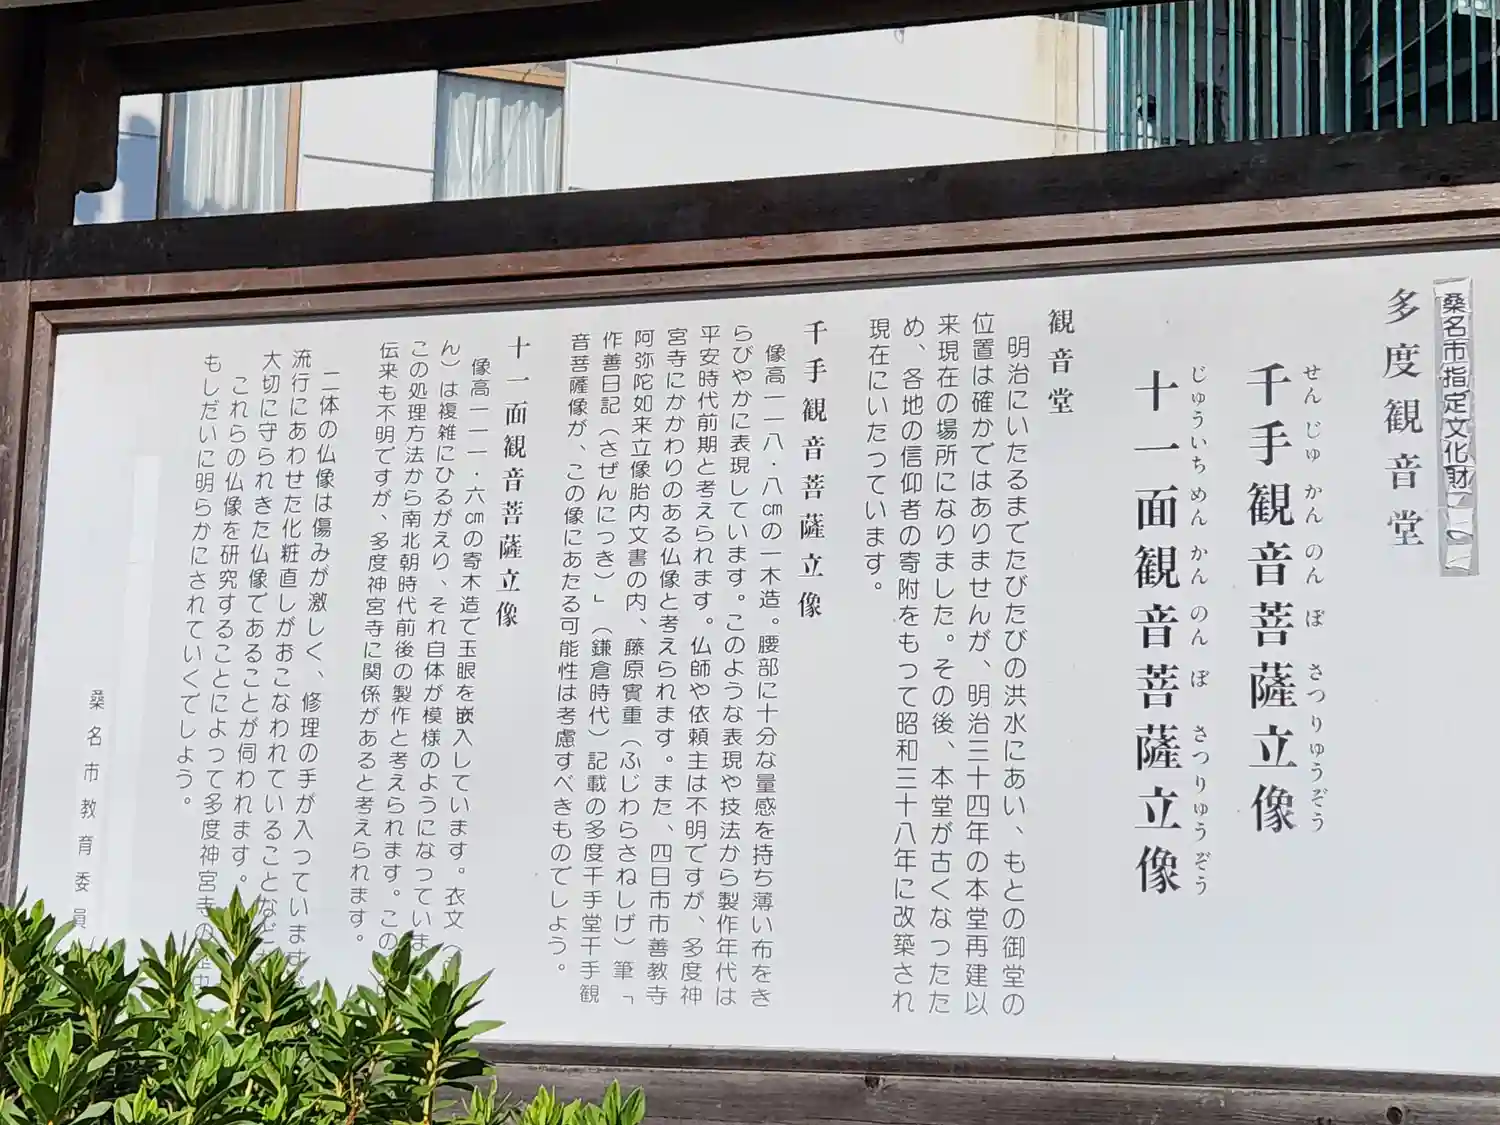 桑名市指定文化財
多度観音堂
せんじゅかんのんぼさつりゅうぞう
千手観音菩薩立像
じゅういちめんかんのんぼさつりゅうぞう
十一面観音菩薩立像
観音堂
明治にいたるまでたびたびの洪水にあい、もとの御堂の
位置は確かではありませんが、明治三十四年の本堂再建以
来現在の場所になりました。その後、本堂が古くなったた
め、各地の信仰者の寄附をもって昭和三十八年に改築され
現在にいたっています。
千手観音菩薩立像
像高一一八・八㎝の一木造。腰部に十分な量感を持ち薄い布をき
らびやかに表現しています。このような表現や技法から製作年代は
平安時代前期と考えられます。仏師や依頼主は不明ですが、多度神
宮寺にかかわりのある仏像と考えられます。また、四日市市善教寺
阿弥陀如来立像胎内文書の内、藤原實重（ふじわらさねしげ）筆「
作善日記（さぜんにっき）」（鎌倉時代）記載の多度千手堂千手観
音菩薩像が、この像にあたる可能性は考慮すべきものでしょう。
十一面観音菩薩立像
像高一一一・六㎝の寄木造で玉眼を嵌入しています。衣文（
ん）は複雑にひるがえり、それ自体が模様のようになっていま
この処理方法から南北朝時代前後の製作と考えられます。この
伝来も不明ですが、多度神宮寺に関係があると考えられます。
二体の仏像は傷みが激しく、修理の手が入っています
流行にあわせた化粧直しがおこなわれていることなど
大切に守られきた仏像であることが伺われます。
これらの仏像を研究することによって多度神宮寺の歴史
もしだいに明らかにされていくでしょう。
桑名市教育委員